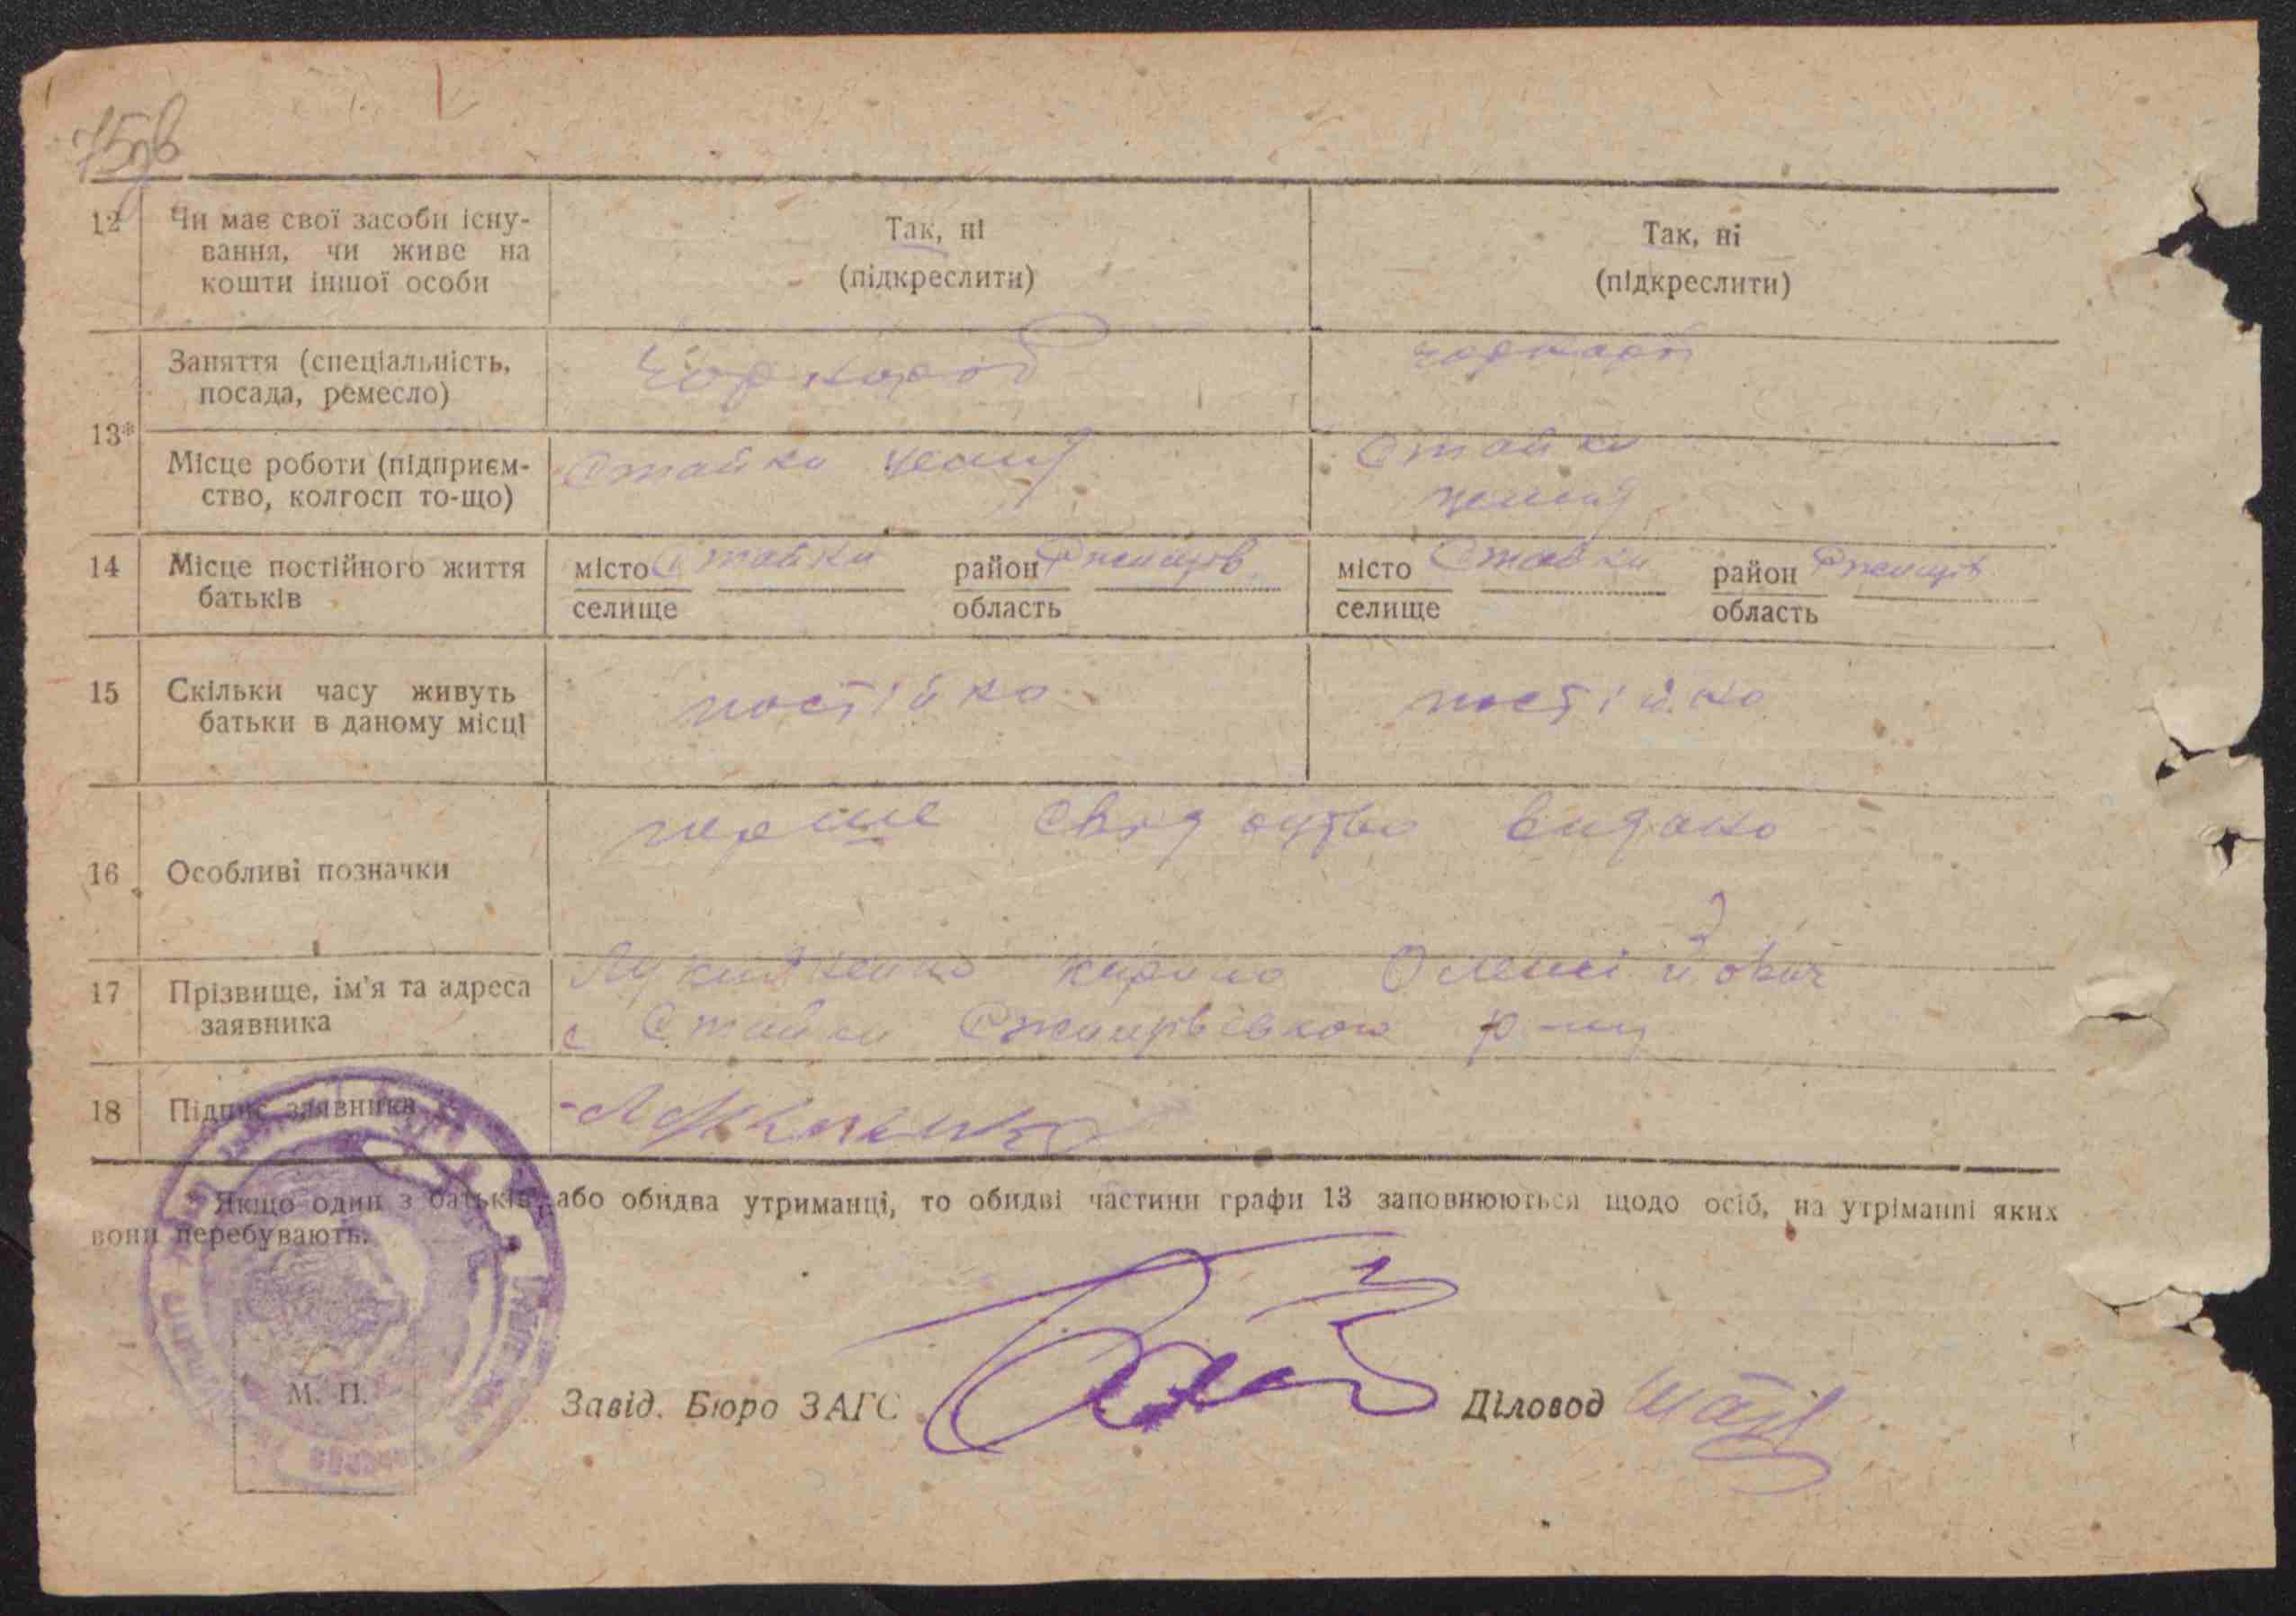 12 Чи має свої засоби існу-
вання, чи живе на
кошти іншої особи
Так, ні
(підкреслити)
Так, ні
(підкреслити)
13*
Заняття (спеціальність,
посада, ремесло)
Чорнороб
чорнороб
Місце роботи (підприєм-
ство, колгосп то-що)
Стайки
Стайки
14 Місце постійного життя
батьків
місто Стайки район Ржищів
селище область
місто Стайки район Ржищів
селище область
15 Скільки часу живуть
батьки в даному місці
постійно
постійно
16 Особливі позначки
перше свідоцтво видано
17 Прізвище, ім'я та адреса
заявника
Кирило Олексійович
с Стайки Ржищівського р-ну
18 Підпис заявника
* Якщо один з батьків, або обидва утриманці, то обидві частини графи 13 заповнюються щодо осіб, на утріманні яких
вони перебувають.
М. П.
Завід. Бюро ЗАГС
Діловод